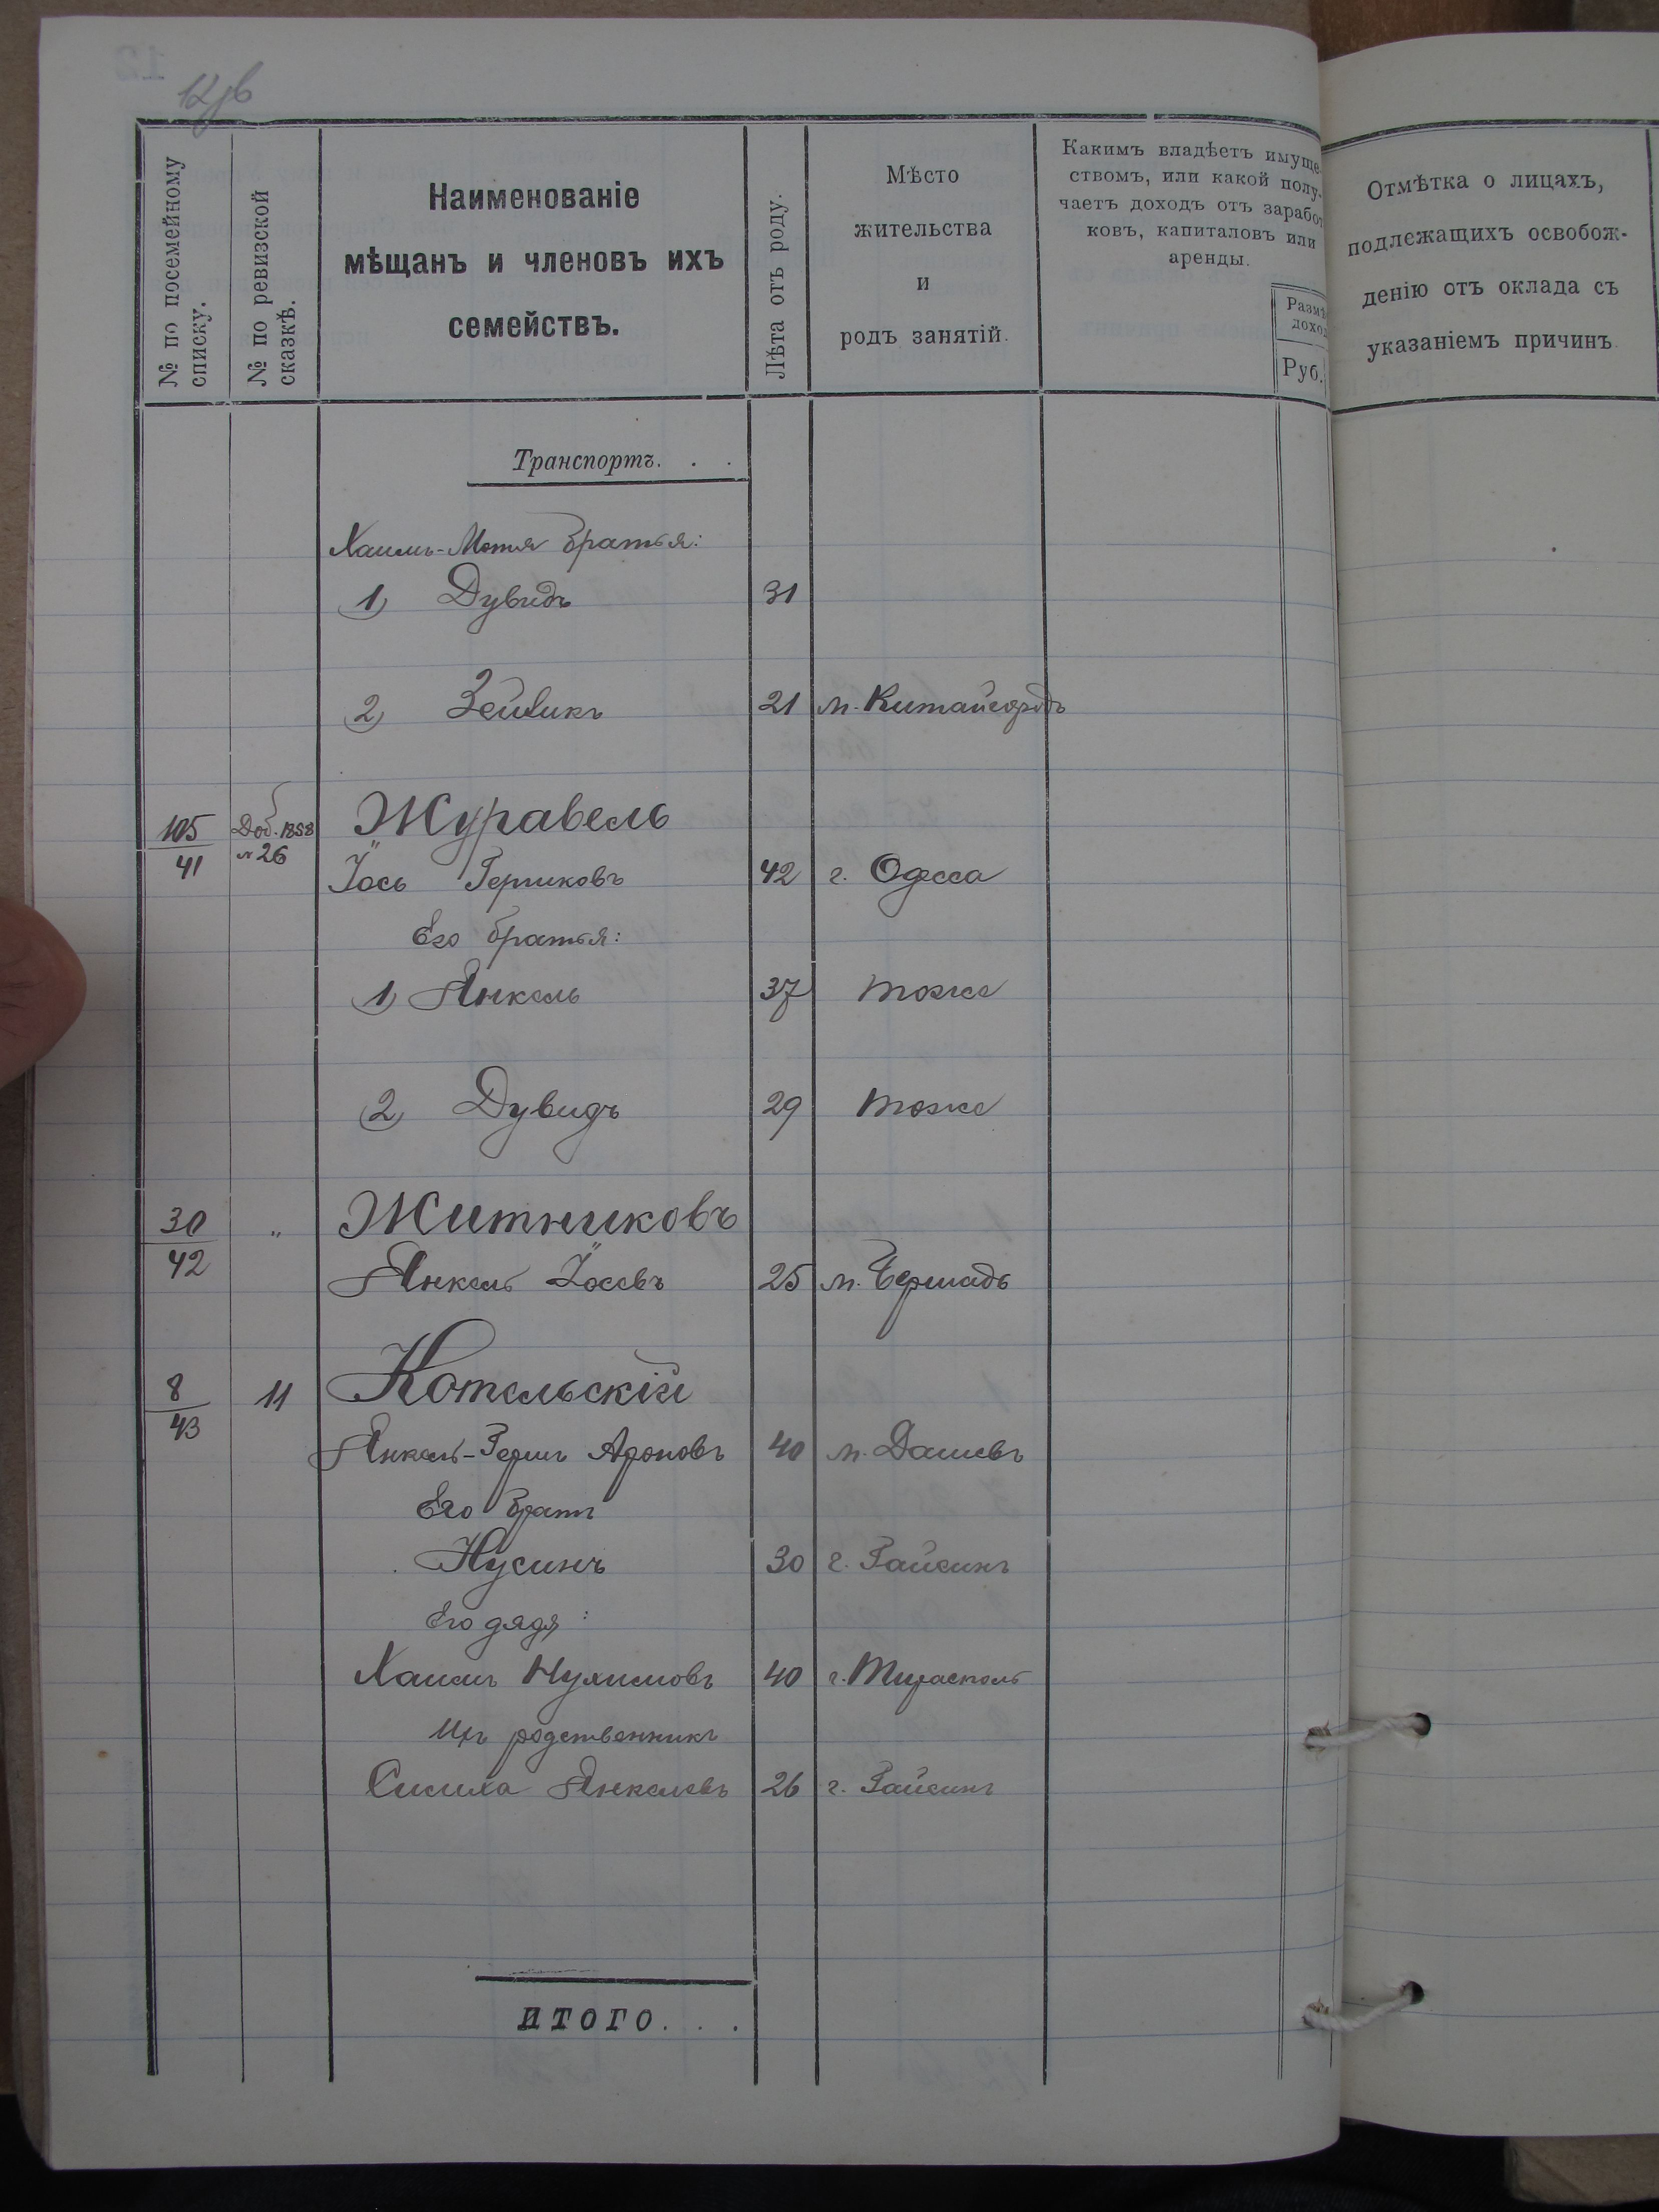 12 об
№ по посемейному
списку.
№ по ревизской
сказкѣ.
Наименованіе
мѣщанъ и членовъ ихъ
семействъ.
Лѣта отъ роду.
Мѣсто
жительства
и
родъ занятій.
Какимъ владѣетъ имуще-
ствомъ, или какой полу-
чаетъ доходъ отъ заработ
ковъ, капиталовъ или
аренды.
Размѣ
доход
Руб.
Отмѣтка о лицахъ,
подлежащихъ освобож-
денію отъ оклада съ
указаніемъ причинъ.
Транспортъ. . .
Хаимъ-Мотя братья:
1) Дувидъ 31
2) Зейликъ 21 м. Китайгородъ
105/41 Доб. 1858 Журавель
№ 26
Іось Гершковъ 42 г. Одесса
Его братья:
1) Янкель 37 тоже
2) Дувидъ 29 тоже
30/42 " Житниковъ
Янкель Іосевъ 25 м. Бершадь
8/43 11 Котельскій
Янкель-Герш Ароновъ 40 м. Дашевъ
Его братъ
Нусинъ 30 г. Гайсинъ
Его дядя:
Хаимъ Нухимовъ 40 г. Тирасполь
Ихъ родственникъ
Янкелевъ 26 г. Гайсинъ
ИТОГО. . .